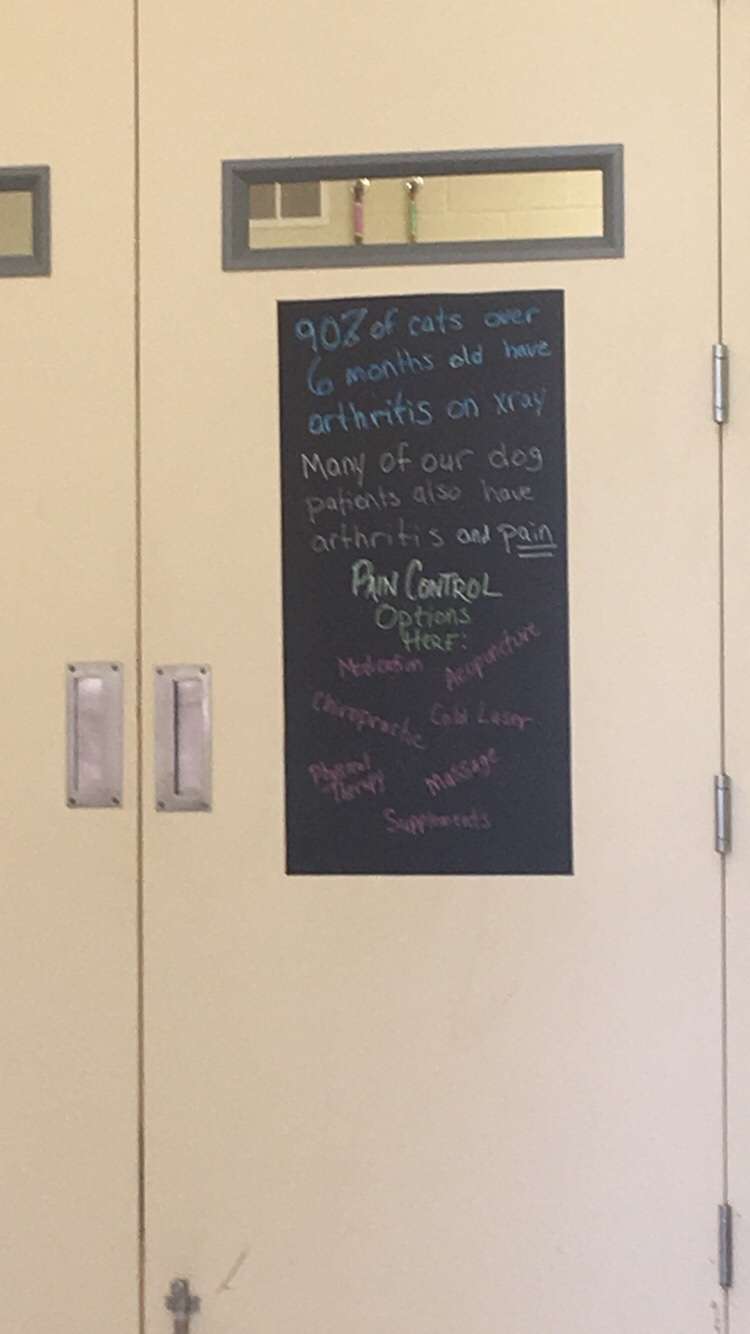 90% of cats over
6 months old have
arthritis on xray
Many of our dog
patients also have
arthritis and pain
PAIN CONTROL
Options
HERE:
Medication Acupuncture
Chiropractic Cold Laser
Physical Therapy Massage
Supplements